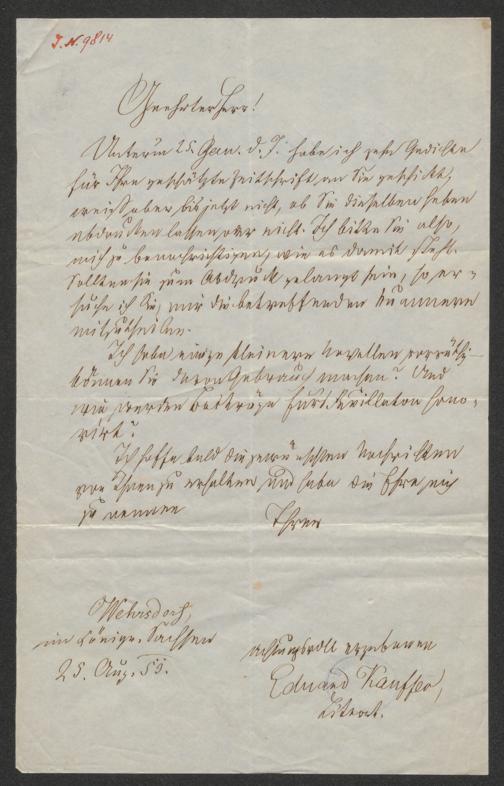 J. N. 9814
Geehrter Herr!
Unterm 25. Jan. d. J. habe ich zehn Gedichte
für Ihre geschätzte Zeitschrift an Sie geschickt,
weiß aber bis jetzt nicht, ob Sie dieselben haben
abdrucken lassen oder nicht. Ich bitte Sie also,
mich zu benachrichtigen, wie es damit steht.
Sollten sie zum Abdruck gelangt sein, so er-
suche ich Sie, mir die betreffenden Nummern
mitzutheilen.
Ich habe einige kleinere Novellen vorräthig
können Sie davon Gebrauch machen? Und
wie werden Beiträge fürs Feuilleton hono-
rirt?
Ich hoffe bald die gewünschten Nachrichten
von Ihnen zu erhalten und habe die Ehre mich
zu nennen
Ihren
Wehrsdorf,
im Königr. Sachsen
25. Aug. 59.
achtungsvoll ergebenen
Eduard Kauffer,
Literat.